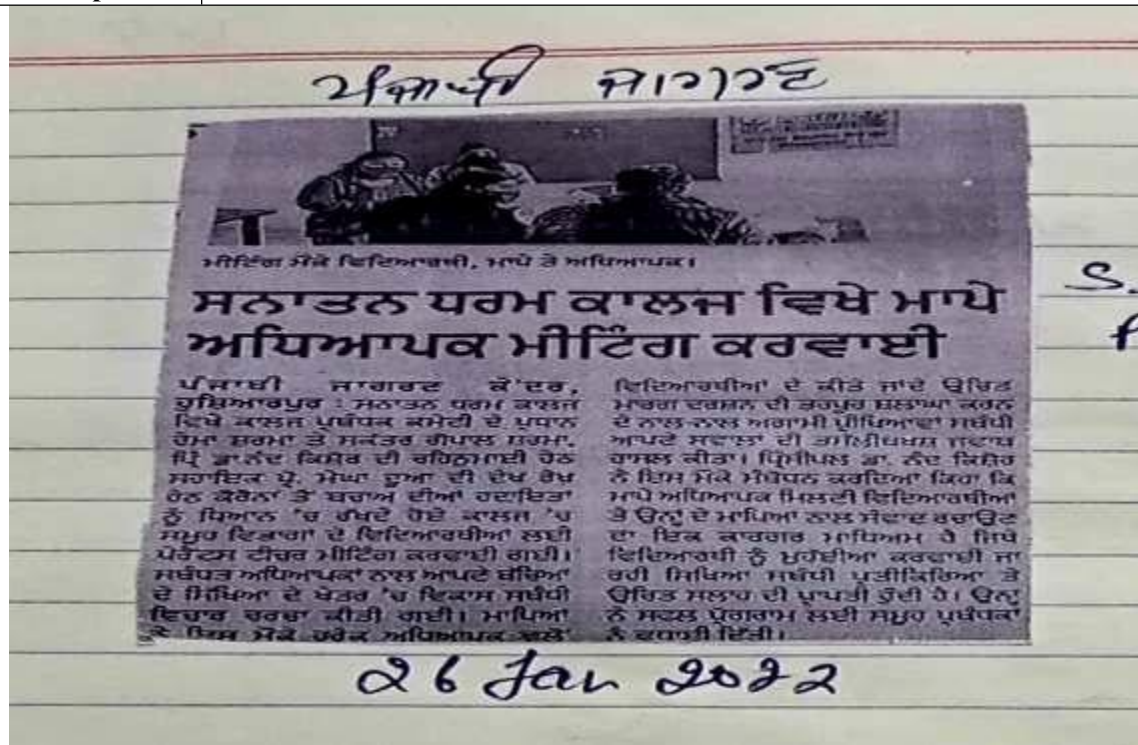 ਪੰਜਾਬੀ ਜਾਗਰਣ
ਮੀਟਿੰਗ ਮੌਕੇ ਵਿਦਿਆਰਥੀ, ਮਾਪੇ ਤੇ ਅਧਿਆਪਕ।
ਸਨਾਤਨ ਧਰਮ ਕਾਲਜ ਵਿਖੇ ਮਾਪੇ
ਅਧਿਆਪਕ ਮੀਟਿੰਗ ਕਰਵਾਈ
ਪੰਜਾਬੀ ਜਾਗਰਣ ਕੇਂਦਰ,
ਹੁਸ਼ਿਆਰਪੁਰ : ਸਨਾਤਨ ਧਰਮ ਕਾਲਜ
ਵਿਖੇ ਕਾਲਜ ਪ੍ਰਬੰਧਕ ਕਮੇਟੀ ਦੇ ਪ੍ਰਧਾਨ
ਹੇਮਾ ਸ਼ਰਮਾ ਤੇ ਸਕੱਤਰ ਗੋਪਾਲ ਸ਼ਰਮਾ,
ਪ੍ਰਿੰ ਡਾ ਨੰਦ ਕਿਸ਼ੋਰ ਦੀ ਰਹਿਨੁਮਾਈ ਹੇਠ
ਸਹਾਇਕ ਪ੍ਰੋ. ਮੇਘਾ ਦੂਆ ਦੀ ਦੇਖ ਰੇਖ
ਹੇਠ ਕੋਰੋਨਾ ਤੋਂ ਬਚਾਅ ਦੀਆਂ ਹਦਾਇਤਾਂ
ਨੂੰ ਧਿਆਨ 'ਚ ਰੱਖਦੇ ਹੋਏ ਕਾਲਜ 'ਚ
ਸਮੂਹ ਵਿਭਾਗਾਂ ਦੇ ਵਿਦਿਆਰਥੀਆਂ ਲਈ
ਪੇਰੈਂਟਸ ਟੀਚਰ ਮੀਟਿੰਗ ਕਰਵਾਈ ਗਈ।
ਸਬੰਧਤ ਅਧਿਆਪਕਾਂ ਨਾਲ ਆਪਣੇ ਬੱਚਿਆਂ
ਦੇ ਸਿੱਖਿਆ ਦੇ ਖੇਤਰ 'ਚ ਵਿਕਾਸ ਸਬੰਧੀ
ਵਿਚਾਰ ਚਰਚਾ ਕੀਤੀ ਗਈ। ਮਾਪਿਆਂ
ਨੇ ਇਸ ਮੌਕੇ ਹਰੇਕ ਅਧਿਆਪਕ ਵਲੋਂ
ਵਿਦਿਆਰਥੀਆਂ ਦੇ ਕੀਤੇ ਜਾਂਦੇ ਉਚਿਤ
ਮਾਰਗ ਦਰਸ਼ਨ ਦੀ ਭਰਪੂਰ ਸ਼ਲਾਘਾ ਕਰਨ
ਦੇ ਨਾਲ-ਨਾਲ ਅਗਾਮੀ ਪ੍ਰੀਖਿਆਵਾਂ ਸਬੰਧੀ
ਆਪਣੇ ਸਵਾਲਾਂ ਦੀ ਤਸੱਲੀਬਖਸ਼ ਜਵਾਬ
ਹਾਸਲ ਕੀਤਾ। ਪ੍ਰਿੰਸੀਪਲ ਡਾ. ਨੰਦ ਕਿਸ਼ੋਰ
ਨੇ ਇਸ ਮੌਕੇ ਸੰਬੋਧਨ ਕਰਦਿਆਂ ਕਿਹਾ ਕਿ
ਮਾਪੇ ਅਧਿਆਪਕ ਮਿਲਣੀ ਵਿਦਿਆਰਥੀਆਂ
ਤੇ ਉਨ੍ਹਾਂ ਦੇ ਮਾਪਿਆਂ ਨਾਲ ਸੰਵਾਦ ਰਚਾਉਣ
ਦਾ ਇਕ ਕਾਰਗਰ ਮਾਧਿਅਮ ਹੈ ਜਿਥੇ
ਵਿਦਿਆਰਥੀ ਨੂੰ ਮੁਹੱਈਆ ਕਰਵਾਈ ਜਾ
ਰਹੀ ਸਿਖਿਆ ਸਬੰਧੀ ਪ੍ਰਤੀਕਿਰਿਆ ਤੇ
ਉਚਿਤ ਸਲਾਹ ਦੀ ਪ੍ਰਾਪਤੀ ਹੁੰਦੀ ਹੈ। ਉਨ੍ਹਾਂ
ਨੇ ਸਫਲ ਪ੍ਰੋਗਰਾਮ ਲਈ ਸਮੂਹ ਪ੍ਰਬੰਧਕਾਂ
ਨੂੰ ਵਧਾਈ ਦਿੱਤੀ।
26 Jan 2022
S.